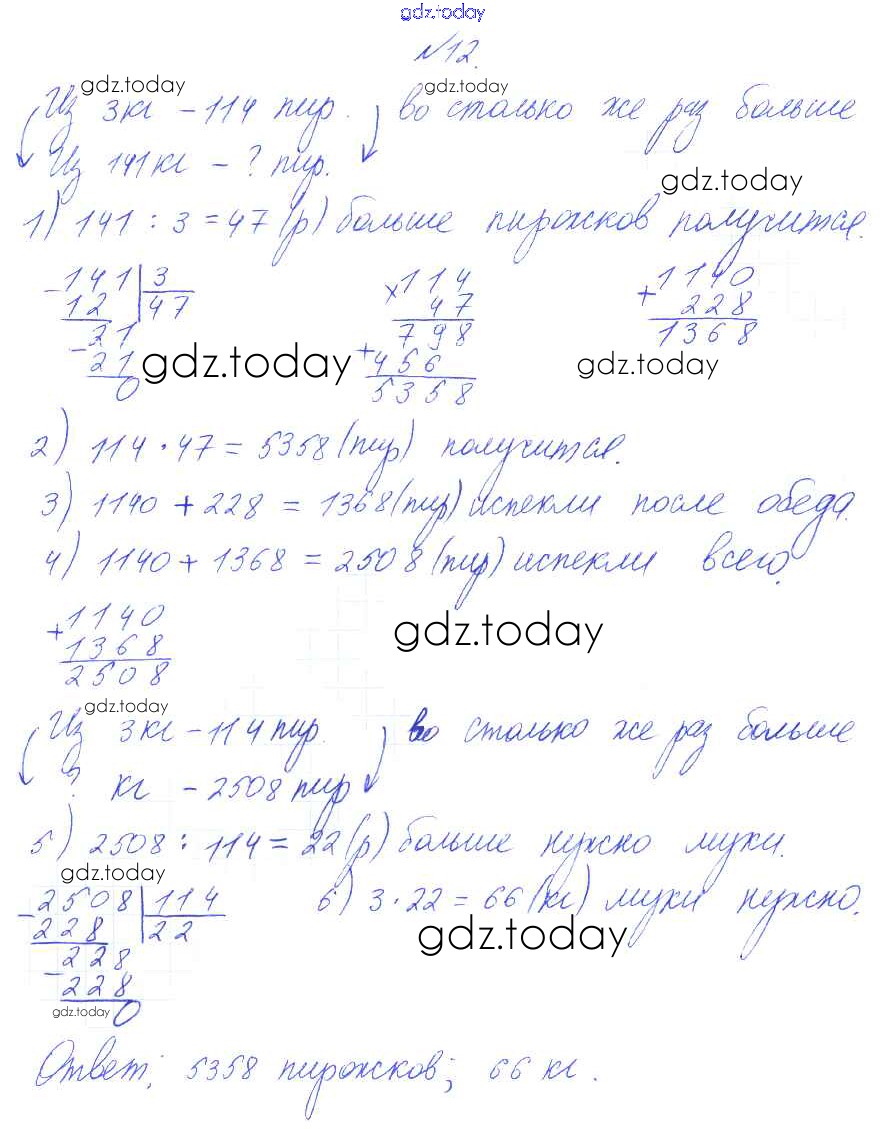 gdz.today
№12.
gdz.today gdz.today
Из 3кг – 114 пир. во столько же раз больше
Из 141кг – ? пир.
gdz.today
1) 141 : 3 = 47 (р) больше пирожков получится.
-141 | 3
12 | 47
-21
21
0
×114
47
798
+456
5358
+1140
228
1368
gdz.today gdz.today
2) 114 · 47 = 5358 (пир) получится.
3) 1140 + 228 = 1368 (пир) испекли после обеда.
4) 1140 + 1368 = 2508 (пир) испекли всего.
+1140
1368
2508
gdz.today
gdz.today
Из 3кг – 114 пир. во столько же раз больше
? кг – 2508 пир
5) 2508 : 114 = 22 (р) больше нужно муки.
gdz.today
-2508 | 114
228 | 22
-228
228
0
6) 3 · 22 = 66 (кг) муки нужно.
gdz.today
gdz.today
Ответ: 5358 пирожков; 66 кг.